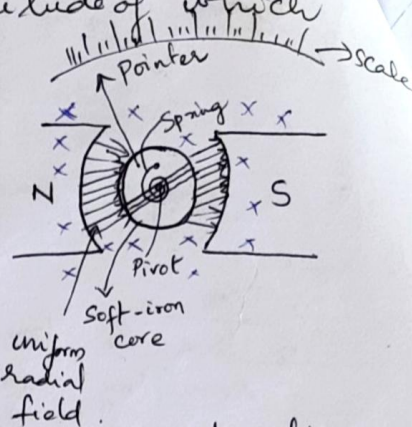 which
Pointer
→Scale
Spring
N
S
Pivot
Soft-iron
core
uniform
radial
field.